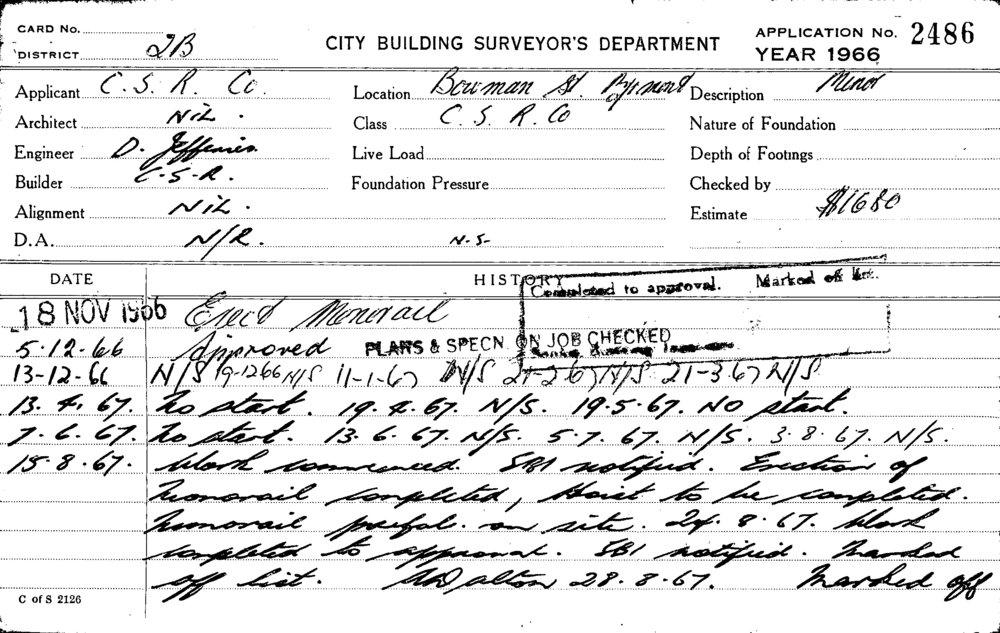 CARD No.
DISTRICT 2B
CITY BUILDING SURVEYOR'S DEPARTMENT
APPLICATION No. 2486
YEAR 1966
Applicant C. S. R. Co. Location Bowman St. Pyrmont Description Minor
Architect NiL. Class C. S. R. Co Nature of Foundation
Engineer D. Jefferies. Live Load Depth of Footings
Builder C-S-R. Foundation Pressure Checked by
Alignment NiL. Estimate $1680
D.A. N/R. N.S-
DATE HISTORY
Completed to approval. Marked off list.
18 NOV 1966 Erect Monorail
5-12-66 Approved PLANS & SPECN ON JOB CHECKED
13-12-66 N/S 19-1266 N/S 11-1-67 N/S 21-2-67 N/S 21-3-67 N/S
13. 4. 67. No start. 19. 4. 67. N/S. 19.5.67. NO start.
7. 6. 67. No start. 13. 6. 67. N/S. 5.7. 67. N/S. 3.8.67. N/S.
15.8.67. Work commenced. SB1 notified. Erection of
monorail completed, Hoist to be completed.
monorail prefab. on site. 24. 8. 67. Work
completed to approval. SB1 notified. Marked
off list. Dalton 28.8.67. Marked off
C of S 2126